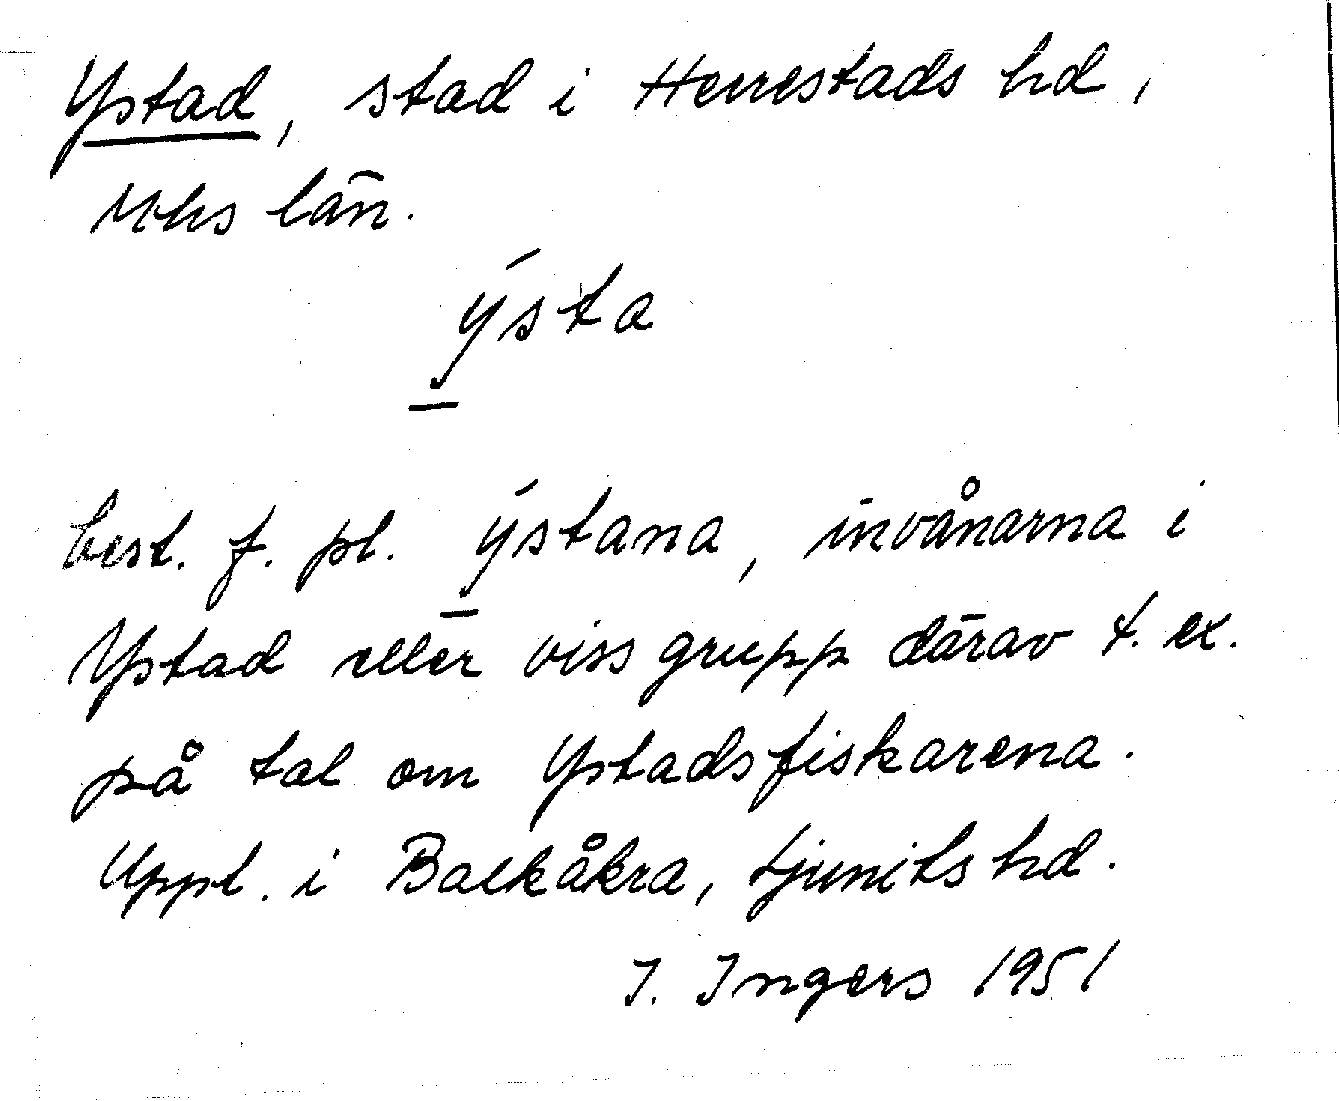 Ystad, stad i Herrestads hd,
Mhs län.
ýsta
best. f. pl. ýstana, invånarna i
Ystad eller viss grupp därav t. ex.
på tal om Ystadsfiskarena.
Uppt. i Balkåkra, Ljunits hd.
I. Ingers 1951